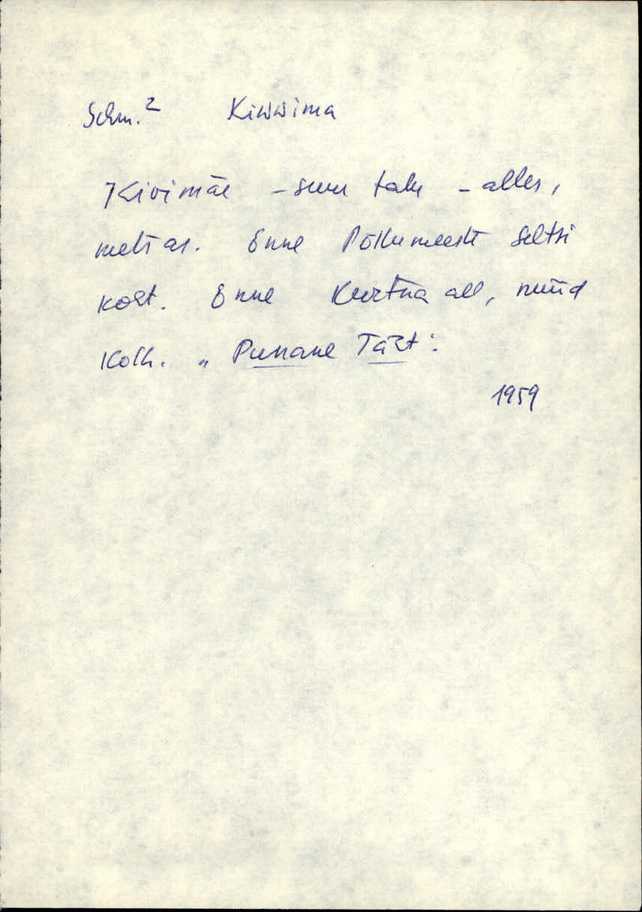 Schm.² Kiwwima
Kivimäe - suur talu - alles,
metsas. Enne Põllumeeste Seltsi
koht. Enne Kurtna all, nüüd
Kolh. „Punane Täht".
1959